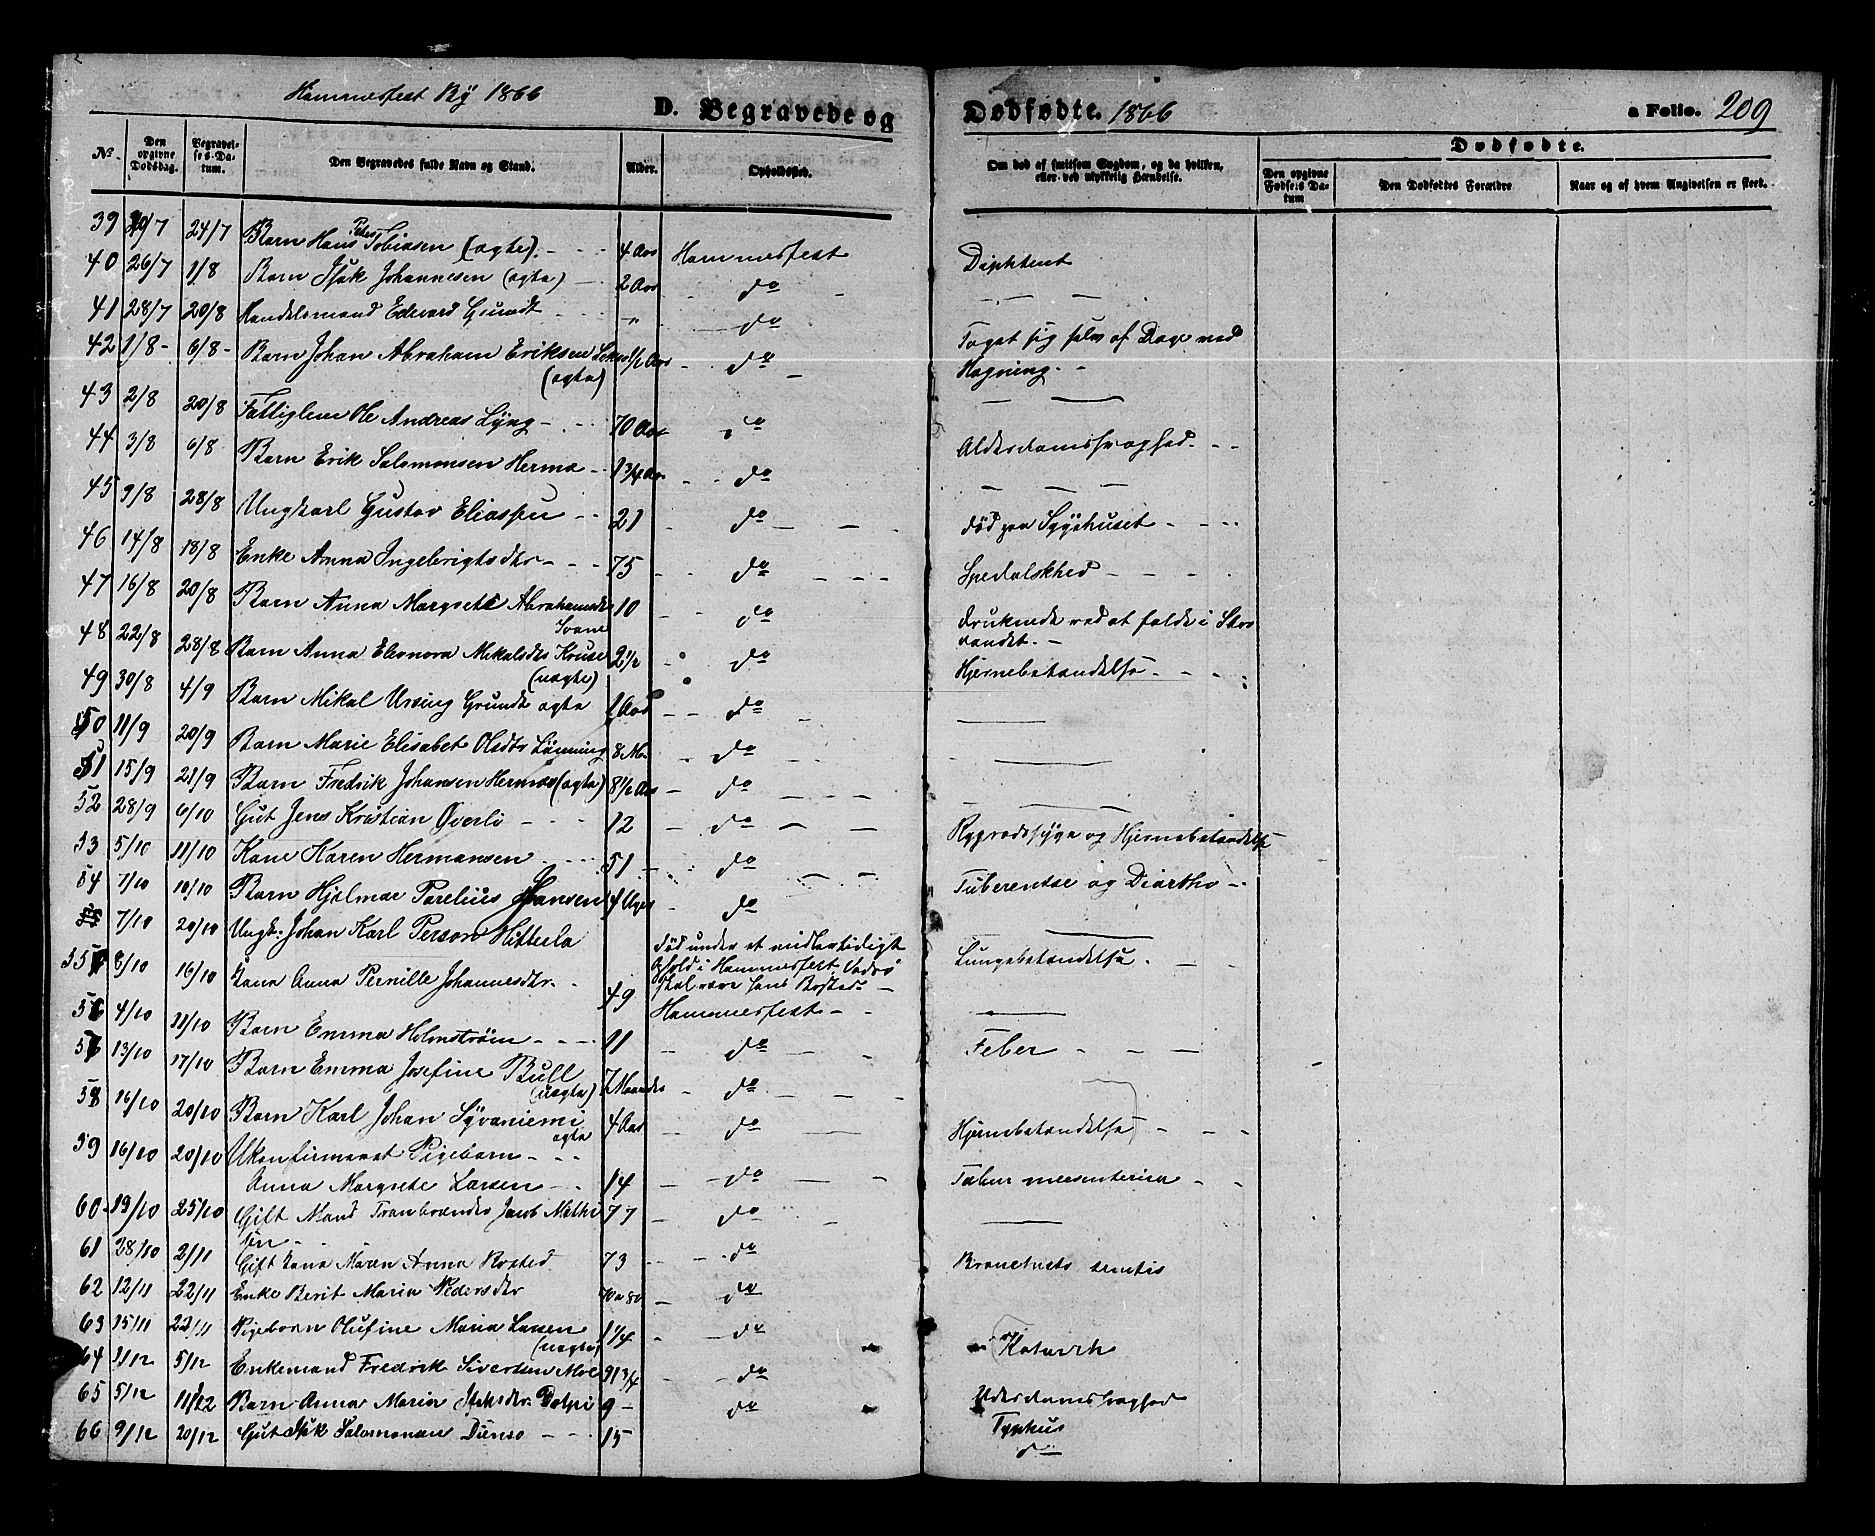 Hammerfest By 1866
D. Begravede og
Dødfødte. 1866
a Folio. 209
No. Den opgivne Dødsdag. Begravelses-Datum. Den Begravedes fulde Navn og Stand. Alder. Opholdssted.
Om død af smitsom Sygdom, og da hvilken, eller ved ulykkelig Hændelse. Dødfødte. Den opgivne Fødsels Datum Den Dødfødtes Forældre Naar og af hvem Angivelsen er skeet.
39 20/7 24/7 Barn Hans Peter Tobiasen (ægte). 4 Aar Hammerfest
40 26/7 1/8 Barn Isak Johannesen (ægte) 2 Aar do
41 28/7 20/8 Handelsmand Edevard Grundt " do
42 1/8 6/8 Barn Johan Abraham Eriksen 1/2 Aar do
(ægte)
43 2/8 20/8 Fattiglem Ole Andreas Lyng 70 Aar do
44 3/8 6/8 Barn Erik Salomonsen Herma 1 3/4 Aar do
45 9/8 28/8 Ungkarl Gustav Eliassen 21 do
46 14/8 18/8 Enke Anna Ingebrigtsdtr 75 do
47 16/8 20/8 Barn Anna Margrete Abrahamsdtr 10 do
48 22/8 28/8 Barn Anna Eleonora Mikalsdtr Kruse 2 1/2 do
(uægte)
49 30/8 4/9 Barn Mikal Ursing Grundt ægte 1 Aar do
50 11/9 20/9 Barn Marie Elisabet Olsdtr Lønning 8 M. do
51 15/9 21/9 Barn Fredrik Johansen Hermas (ægte) 8 1/2 Aar do
52 28/9 6/10 Gut Jens Kristian Øverli 12 do
53 5/10 11/10 Kone Karen Hermansen 51 do
54 7/10 10/10 Barn Hjalmar Parelius Hansen 4 Uger do
55 7/10 20/10 Ungk. Johan Karl Person Hitterla død under et midlertidigt
Ophold i Hammerfest, Vadsø
skal være hans Bosted
8/10 16/10 Kone Anna Pernille Johannesdtr. 49 Hammerfest
4/10 11/10 Barn Emma Holmstrøm 11 do
13/10 17/10 Barn Emma Josefine Bull 7 Maaneder do
(uægte)
58 16/10 20/10 Barn Karl Johan Syvaniemi 4 Aar do
ægte
59 16/10 20/10 Ukonfirmeret Pigebarn
Anna Margrete Larsen 14 do
60 19/10 25/10 Gift Mand Tranbrænder Jacob Mathi 77 do
sen
61 28/10 2/11 Gift Kone Maren Anna Rosted 73 do
62 12/11 22/11 Enke Berit Maria Pedersdtr 70 a 80 do
63 15/11 22/11 Pigebarn Olufine Maria Larsen 1 1/4 do
(uægte)
64 1/12 5/12 Enkemand Fredrik Sivertsen Moe 91 3/4 do
65 5/12 11/12 Barn Anna Maria Isaksdtr. 9 do
66 9/12 20/12 Gut Isak Salomonsen 15
Diphterit
Taget sig selv af Dage ved
Hægning.
Alderdomssvaghed.
død paa Sygehuset
Spedalskhed
druknede ved at falde i Stor
vandet.
Hjernebetændelse
Rygradssyge og Hjernebetændelse
og
Lungebetændelse.
Feber
Hjernebetændelse
mesenterica
Katarrh
Alderdomssvaghed
Typhus
do